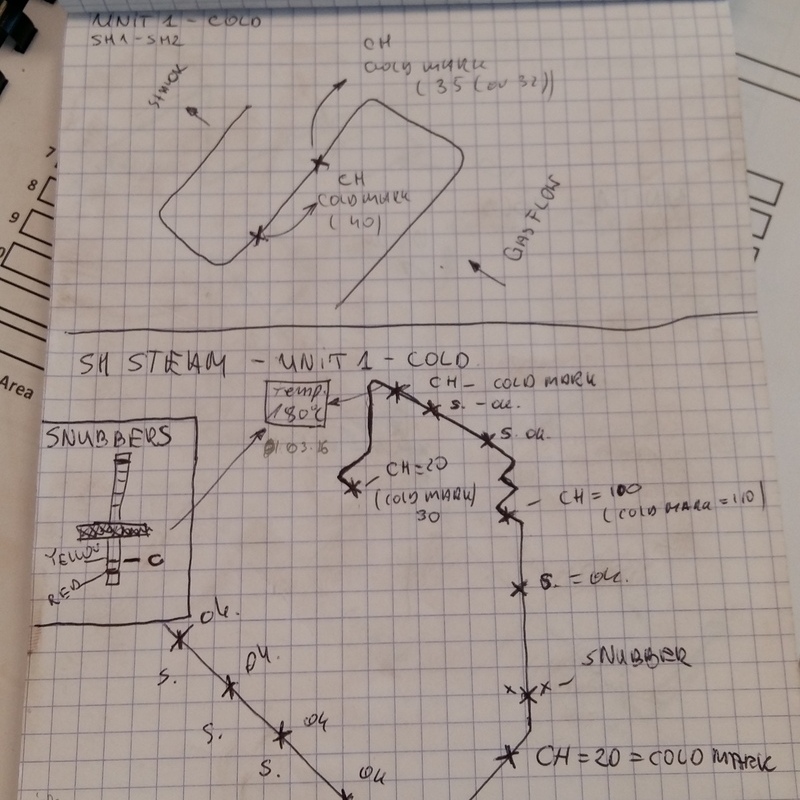 UNIT 1 - COLD
SH1 - SH2
CH
COLD MARK
(35 (OU 32))
STACK
CH
COLD MARK
(40)
GAS FLOW
7
8
9
Area
SH STEAM - UNIT 1 - COLD
Temp.
180°C
01.03.16
CH - COLD MARK
S. - OK.
S. OK.
SNUBBERS
YELLOW
C
RED
CH = 20
(COLD MARK)
30
CH = 100
(COLD MARK = 110)
S. = OK.
SNUBBER
CH = 20 = COLD MARK
OK.
S.
OK.
S.
OK
S.
OK